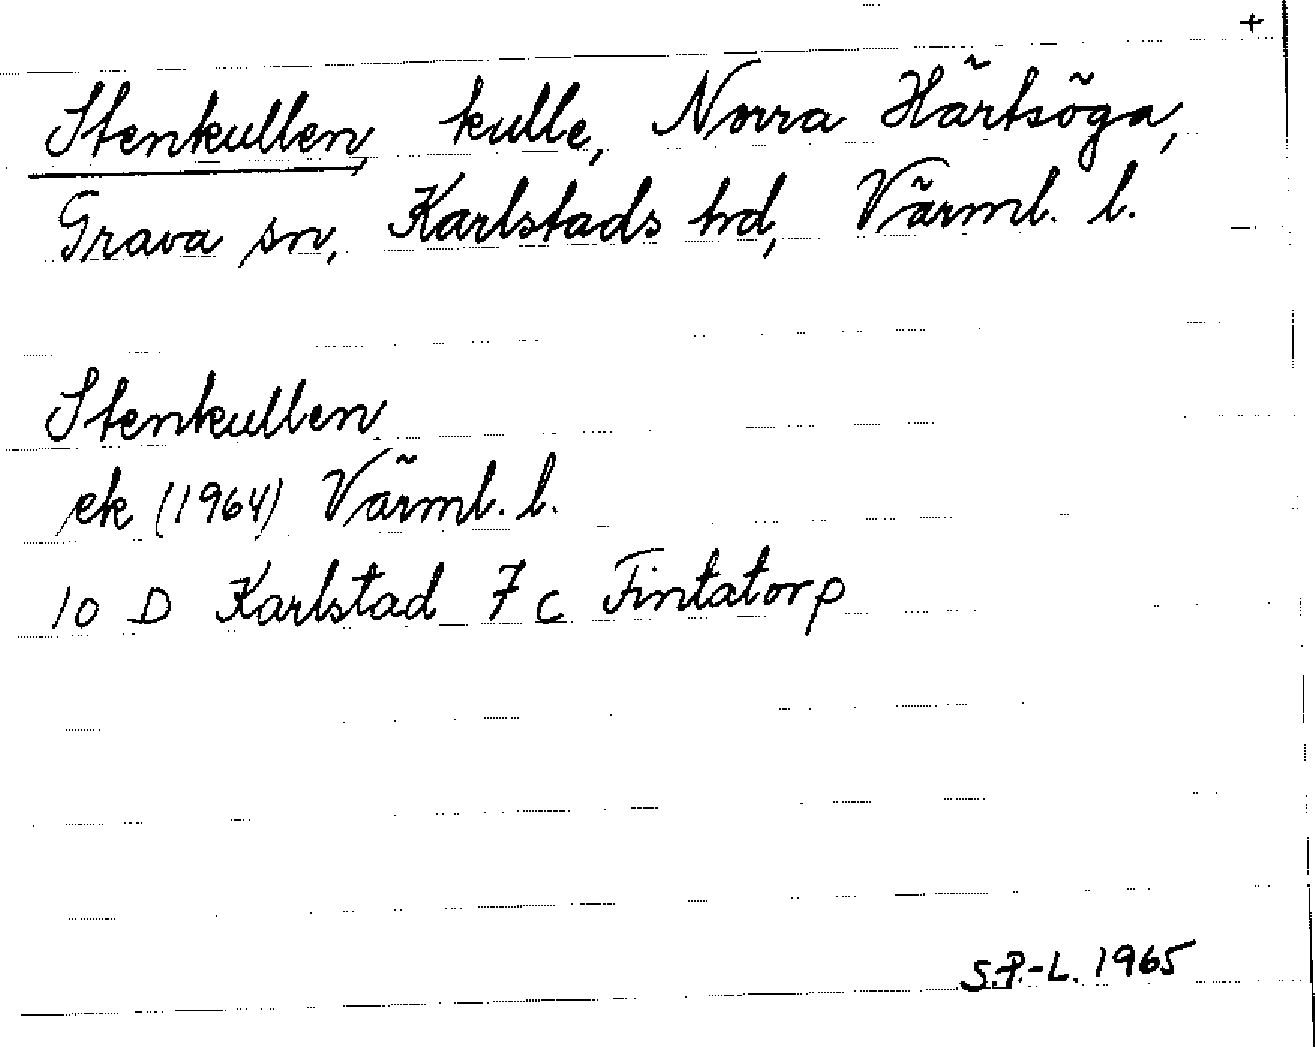 +
Stenkullen, kulle, Norra Härtsöga,
Grava sn, Karlstads hd, Värml. l.
Stenkullen
ek (1964) Värml. l.
10 D Karlstad 7 c Fintatorp
S.P.-L. 1965